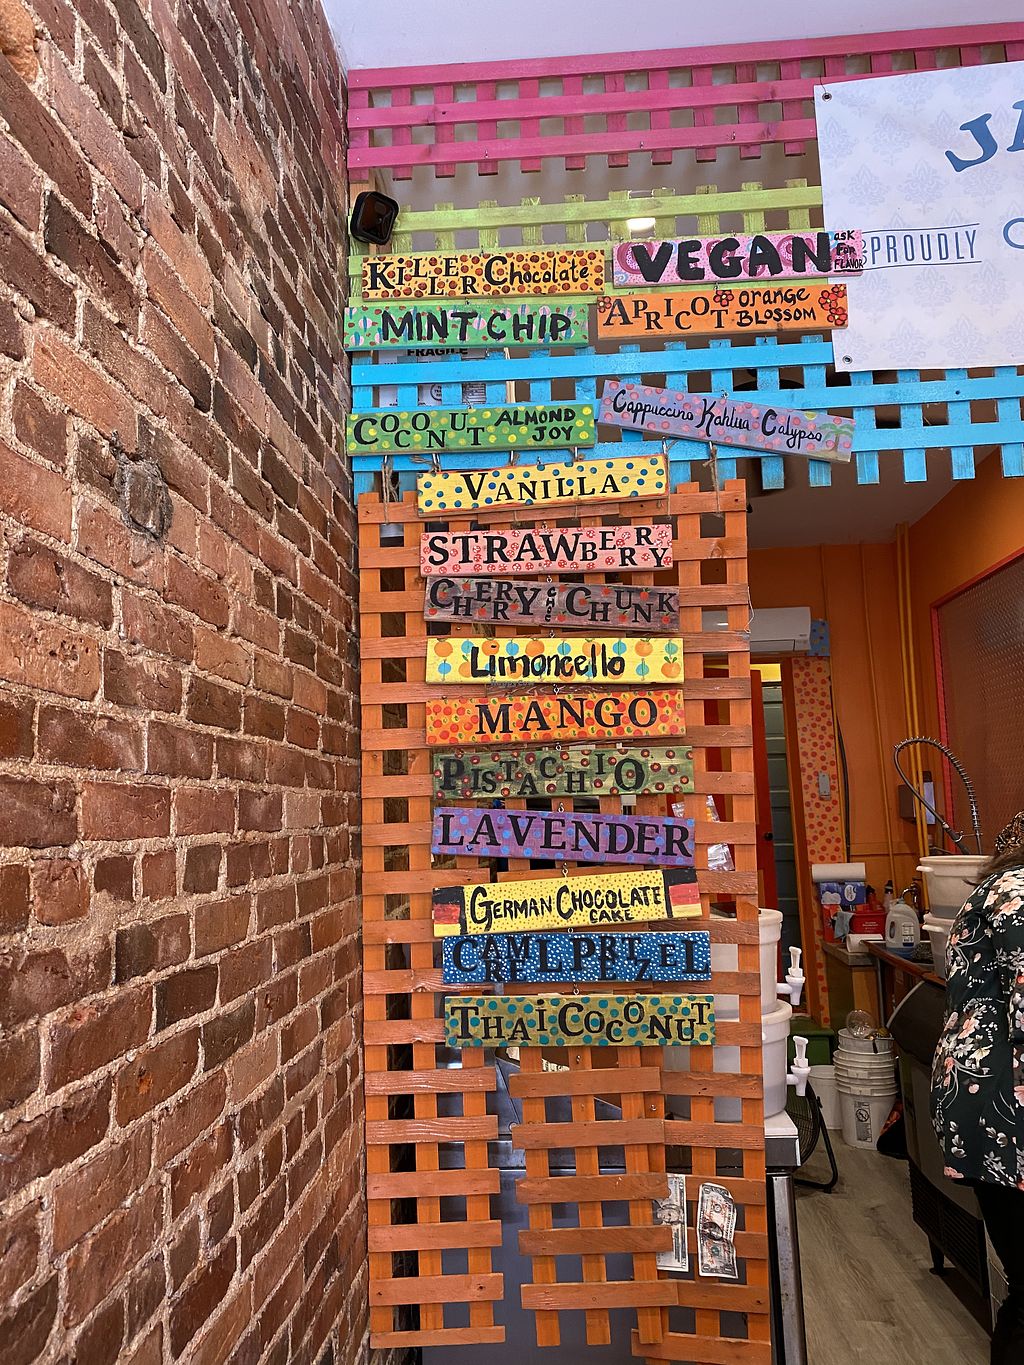 JA
PROUDLY
KILLER Chocolate
VEGAN ask FOR FLAVOR
MINT CHIP
APRICOT orange BLOSSOM
FRAGILE
COCONUT ALMOND JOY
Cappuccino Kahlua Calypso
VANILLA
STRAWBERRY
CHERRY CHOC CHUNK
Limoncello
MANGO
PISTACHIO
LAVENDER
GERMAN CHOCOLATE CAKE
CARMEL PRETZEL
THAI COCONUT